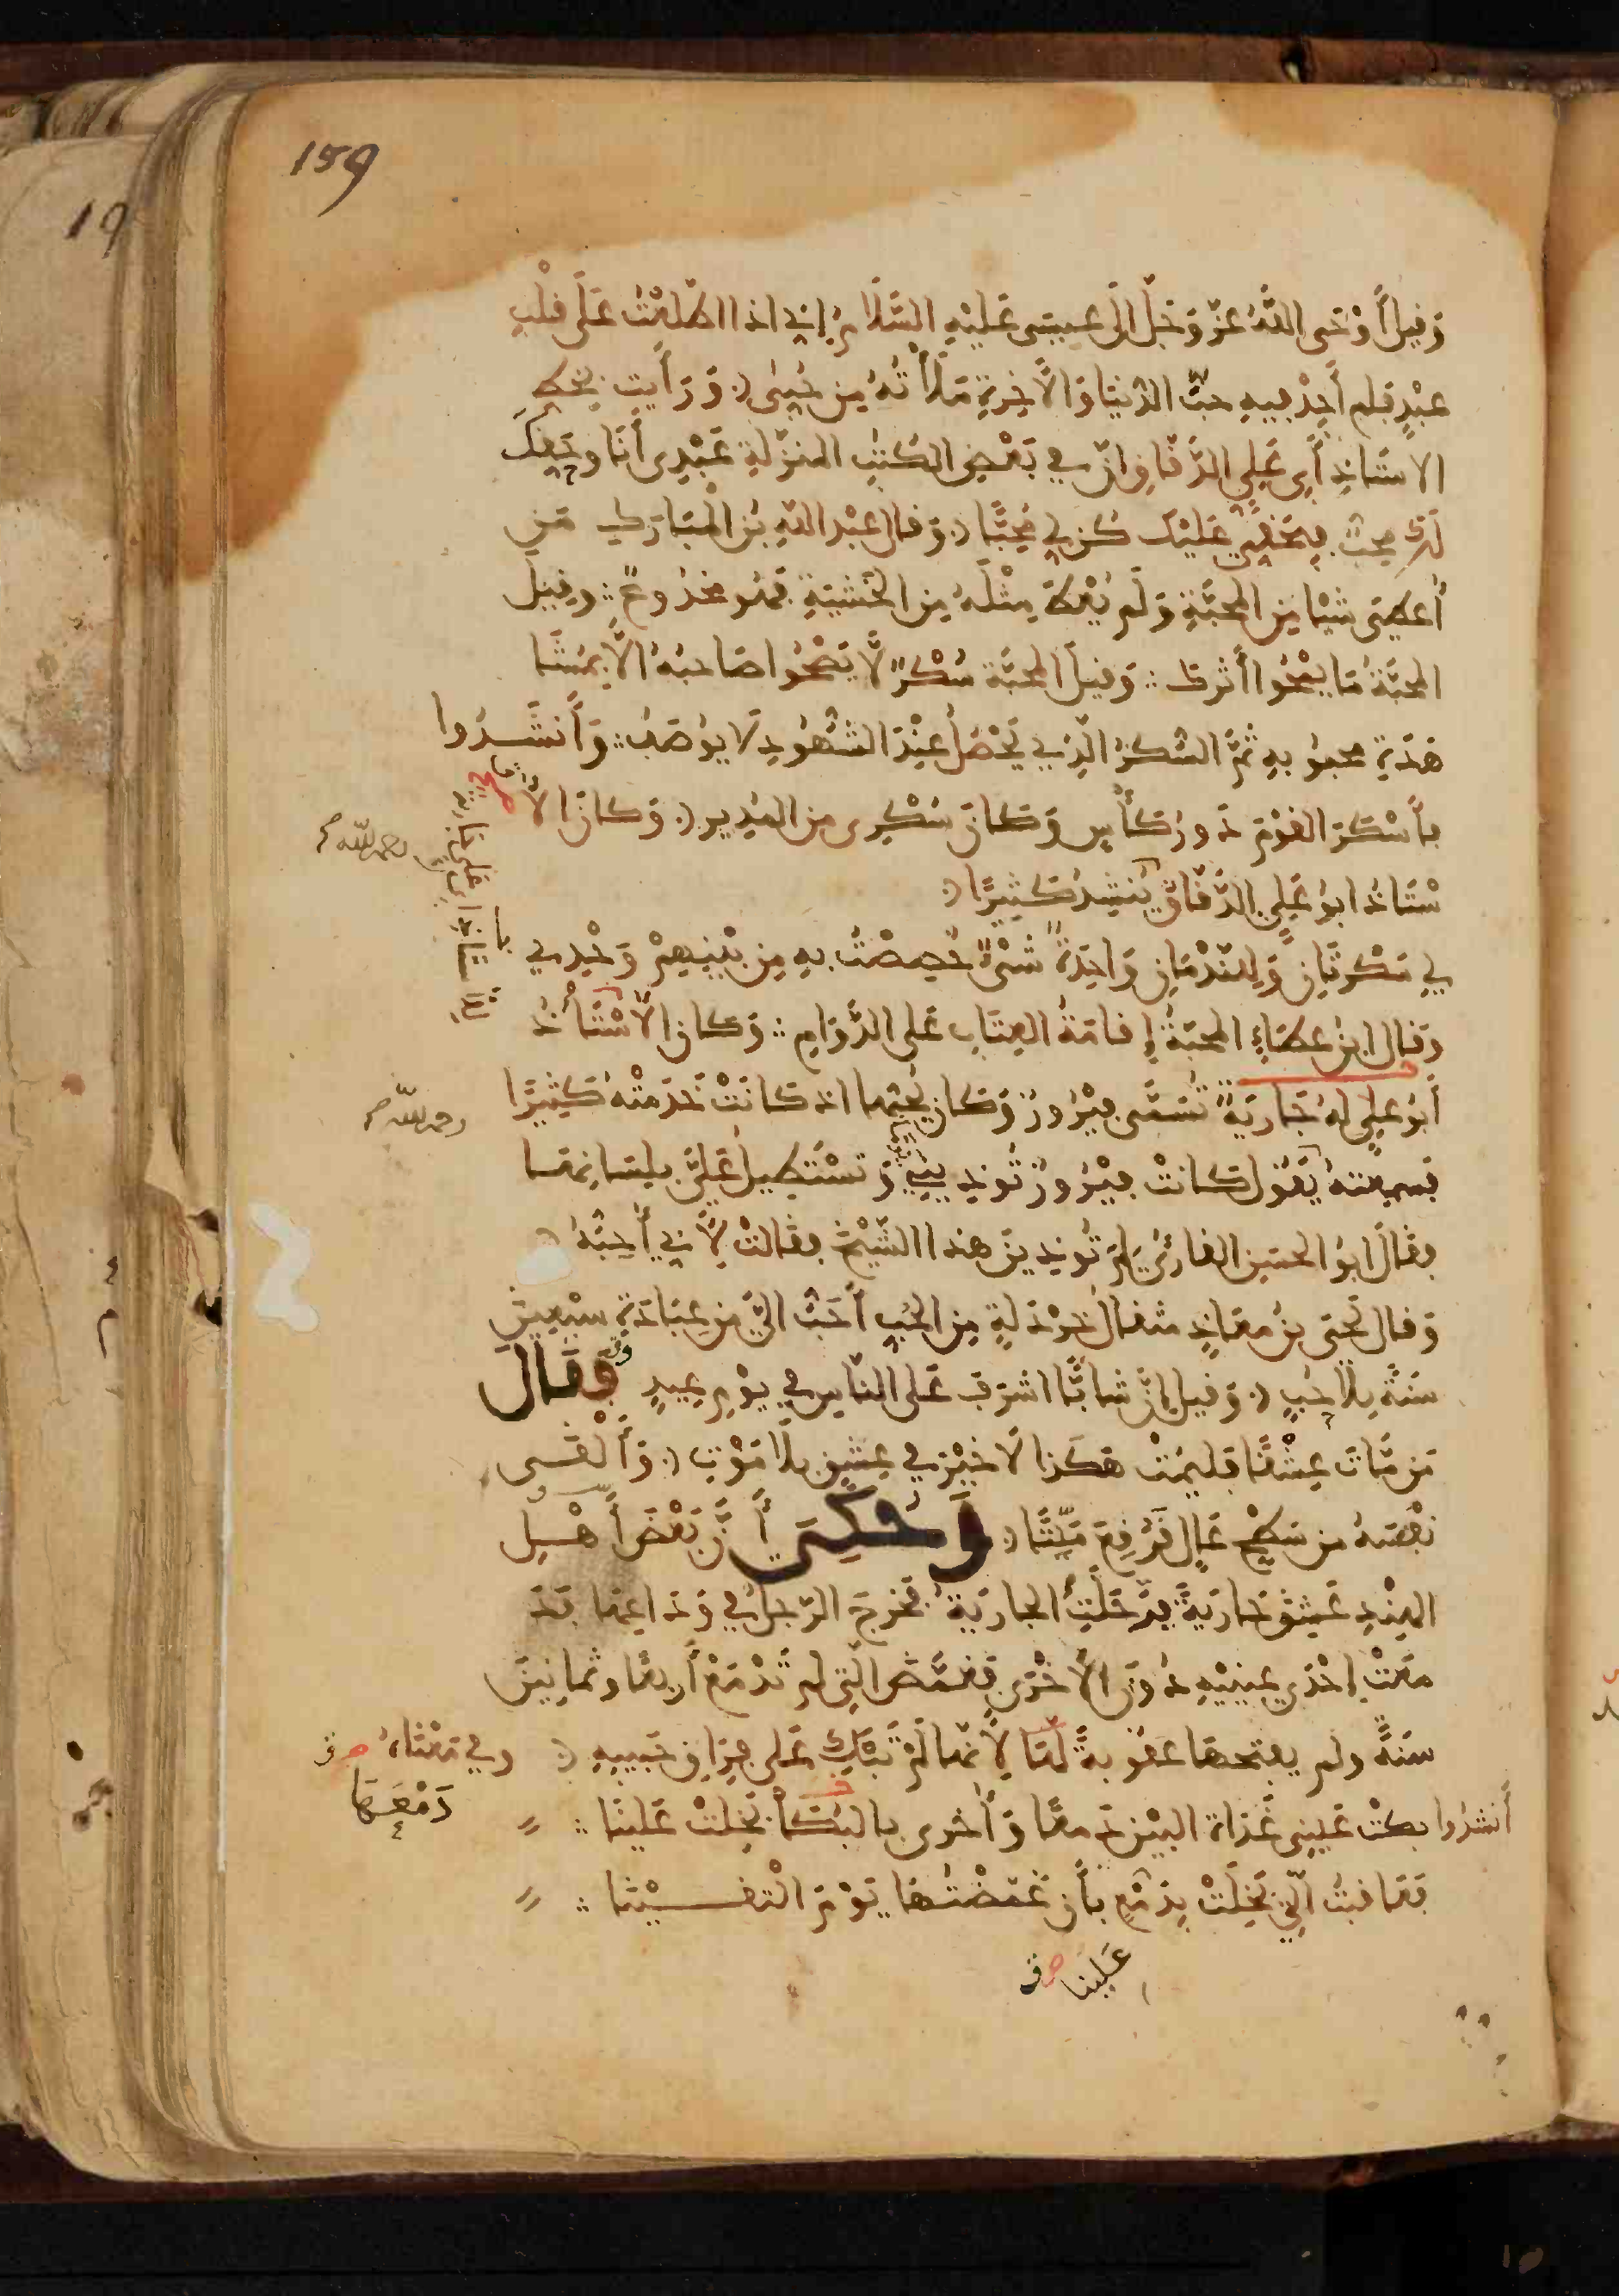 159
وَفِيلَ أَوْحَى اللَّهُ عَزَّ وَجَلَّ إلَى عِيسَى عَلَيْهِ السَّلَامُ إنِّي اذا اطَّلَعْتُ عَلَى قلْبِ
عبْدٍ فلم أَجِدْ فيهِ حبَّ الدُّنْيَا وَالْآخِرَةِ مَلَأْتُهُ مِن حُبِّي وَرَأَيت بخط
الاسْتَاذِ أَبِي عَلِي الدَّقَّاقِ ان في بَعْضِ الكُتُبِ المنزَّلَةِ عَبْدِي أَنَا وَحَقِّكَ
لَكَ محبٌّ فبحَقِّي عَلَيْكَ كُن لي مُحِبًّا وَقال عبْد اللهِ بْن الْمُبَارَكِ مَن
أُعطِيَ شَيْا مِن المحَبَّةِ وَلَمْ يُعْطَ مِثْلَهُ مِن الخَشْيَةِ فَهُو مخدُوعٌ وفِيل
المحبَّةُ مَا يمْحُوا أَثَرَك وَفيلَ المحبَّة سُكْرٌ لَّا يَصْحُوا صَاحبُهُ الَّا بِمُشَا
هَدَةِ محبُوبهِ ثمَّ السُّكرُ الَّذِي يَحْصُلُ عِنْدَ الشُّهُودِ لَا يُوصَفُ وَأَنشَدُوا
فأَسْكَرَ القَوْمَ دَورُ كَأْسٍ وَكانَ سُكْرِى مِن المُدِير وَكانَ الأُ
سْتَاذُ ابُو عَلِي الدَّقَّاقُ يُنشِدُ كَثِيرًا
لِي سَكْرتَانِ وَلِلنَّدْمَانِ وَاحِدَةٌ شَىْءٌ خُصِصْتُ بهِ مِن بَيْنِهِمْ وَحْدِي
وَقال ابن عطَاءٍ المحَبَّةُ إِقامَةُ العِتَابِ عَلى الدَّوَامِ وَكان الأُسْتَاذُ
أَبُو عَلِي لهُ جَاريَةٌ تُسَمَّى فيْرُوزَ وَكان يُحِبُّها اذ كَانَتْ خَدَمَتْهُ كَثِيرًا
رحمه الله
فسمِعْتهُ يَقُول كانتْ فَيْرُوزُ تُوذِيني يَوْمًا وَتسْتَطِيل عَلَيَّ بلِسَانِهَا
فقَالَ ابُو الحسَن القارئُ لِمَ تُوذِينَ هذا الشَّيْخَ فقَالتْ لِأَنِّي أُحِبُّهُ
وَقال يَحْيَى بنُ مُعَاذٍ مثقال خَرْدَلَةٍ مِن الحُبِّ أَحَبُّ الَيَّ مِن عِبَادَةِ سبْعِينَ
سَنَةً بلَا حُبٍّ وَقيل إنَّ شابًّا اشْرَفَ عَلى النَّاسِ في يَوْمِ عِيدٍ فَقَالَ
مَن مَّاتَ عِشْقًا فَليَمُتْ هَكَذا لَا خَيْرَ في عِشْقٍ بلَا مَوْتٍ وَأَلْقَى
نفْسَهُ من سَطْحٍ عَالٍ فَوَقَعَ مَيِّتًا وَحُكِيَ أَنَّ بَعْضَ أَهْلِ
الهِنْدِ عَشِقَ جَاريَةً فرَحَلَتِ الجاريَةُ فخَرجَ الرَّجلُ في وَدَاعِهَا فَدَ
مَعَتْ إحْدَى عينَيْهِ دُونَ الأخْرَى فغَمَّضَ الَّتي لم تَدْمَعْ أَربَعًا وثمانِينَ
سَنَةً ولم يفتحهَا عقُوبةً لَّهَا لِأَنَّهَا لَمْ تَبْكِ عَلى فِرَاقِ حَبيبِهِ وفي مَعْنَاهُ
أَنشدُوا بكتْ عَيْنِي غَدَاةَ البَيْنِ دَمعًا وَأُخْرى بالبُكَا بَخِلتْ عَلَينَا
دَمْعَهَا
فعَاقبْتُ الَّتِي بَخِلَتْ بِدَمْعٍ بأَن غَمَّضْتُهَا يَوْمَ الْتقَيْنَا
عَلَينا